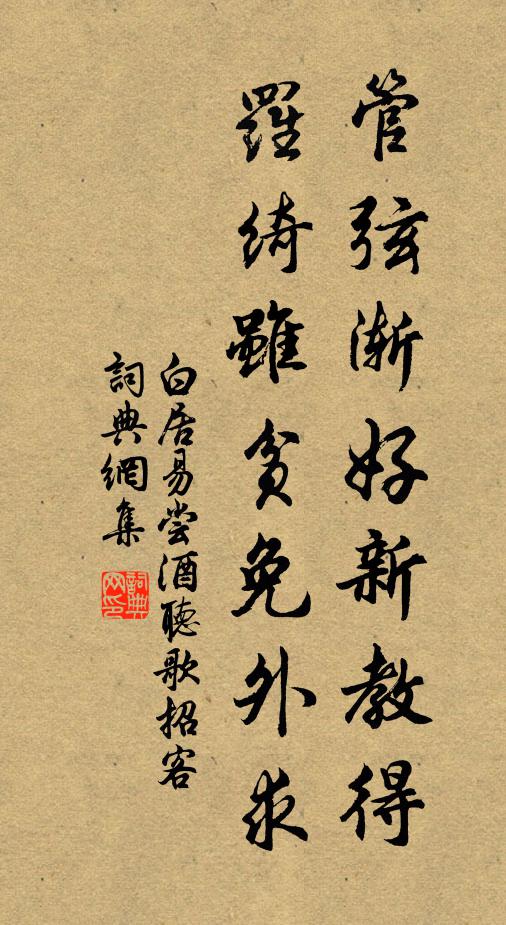 管弦漸好新教得
羅綺雖貧免外求
白居易嘗酒聽歌招客
詞典網集
詞典
网印